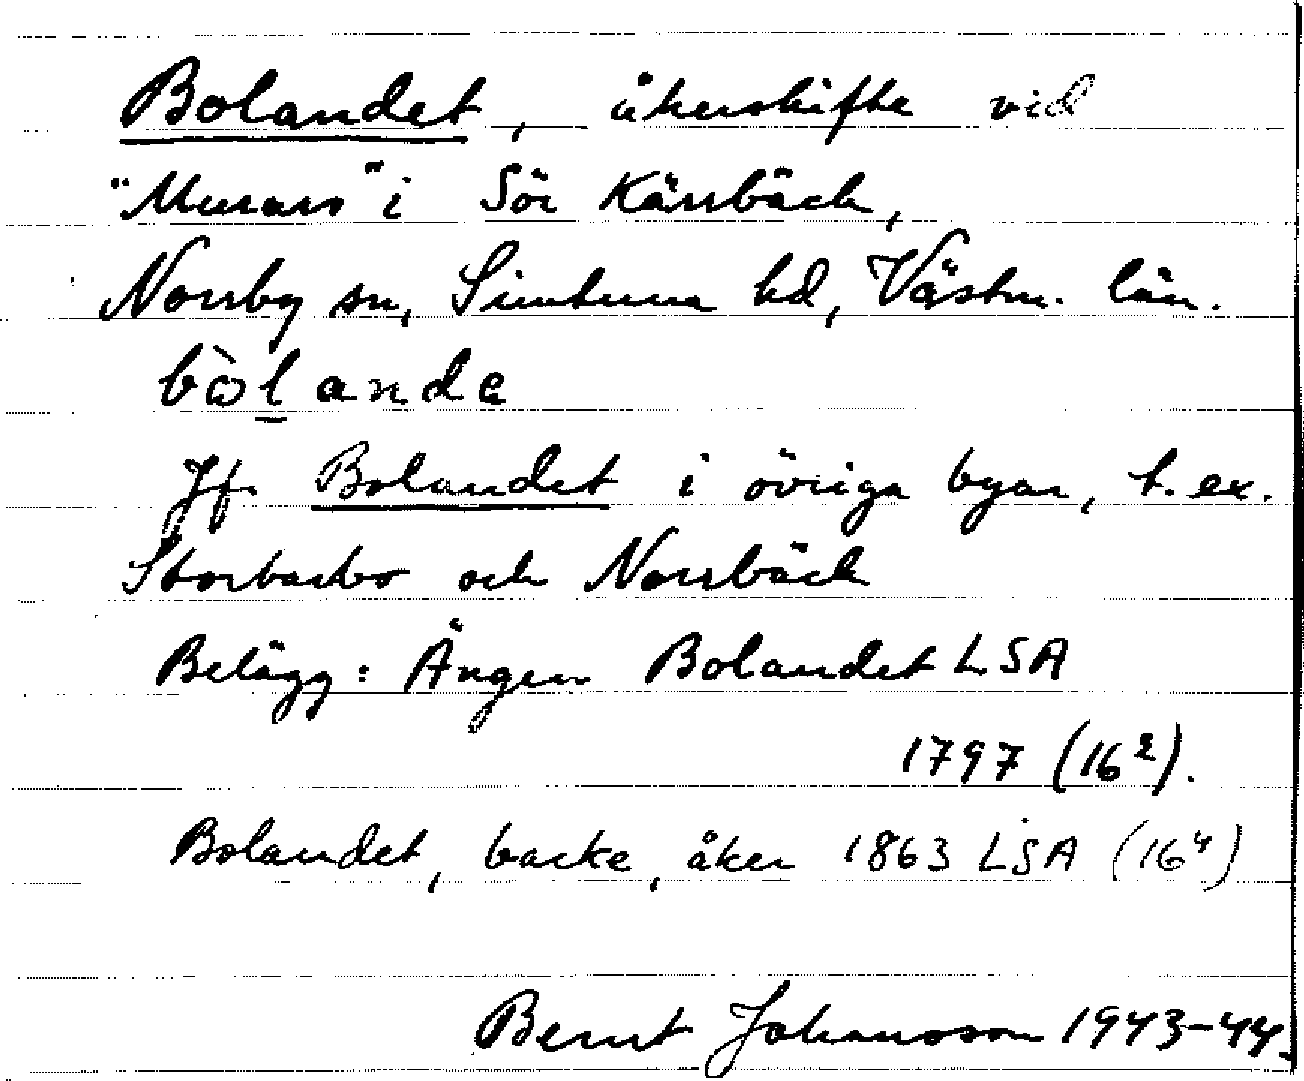 Bolandet, åkerskifte vid
"Murars" i Sör Kärrbäck,
Norrby sn, Simtuna hd, Västm. län.
bòlandə
Jfr Bolandet i övriga byar, t. ex.
Storbarbo och Norrbäck
Belägg: Ängen Bolandet LSA
1797 (16²).
Bolandet, backe, åker 1863 LSA (16⁴)
Bernt Johansson 1943-44.